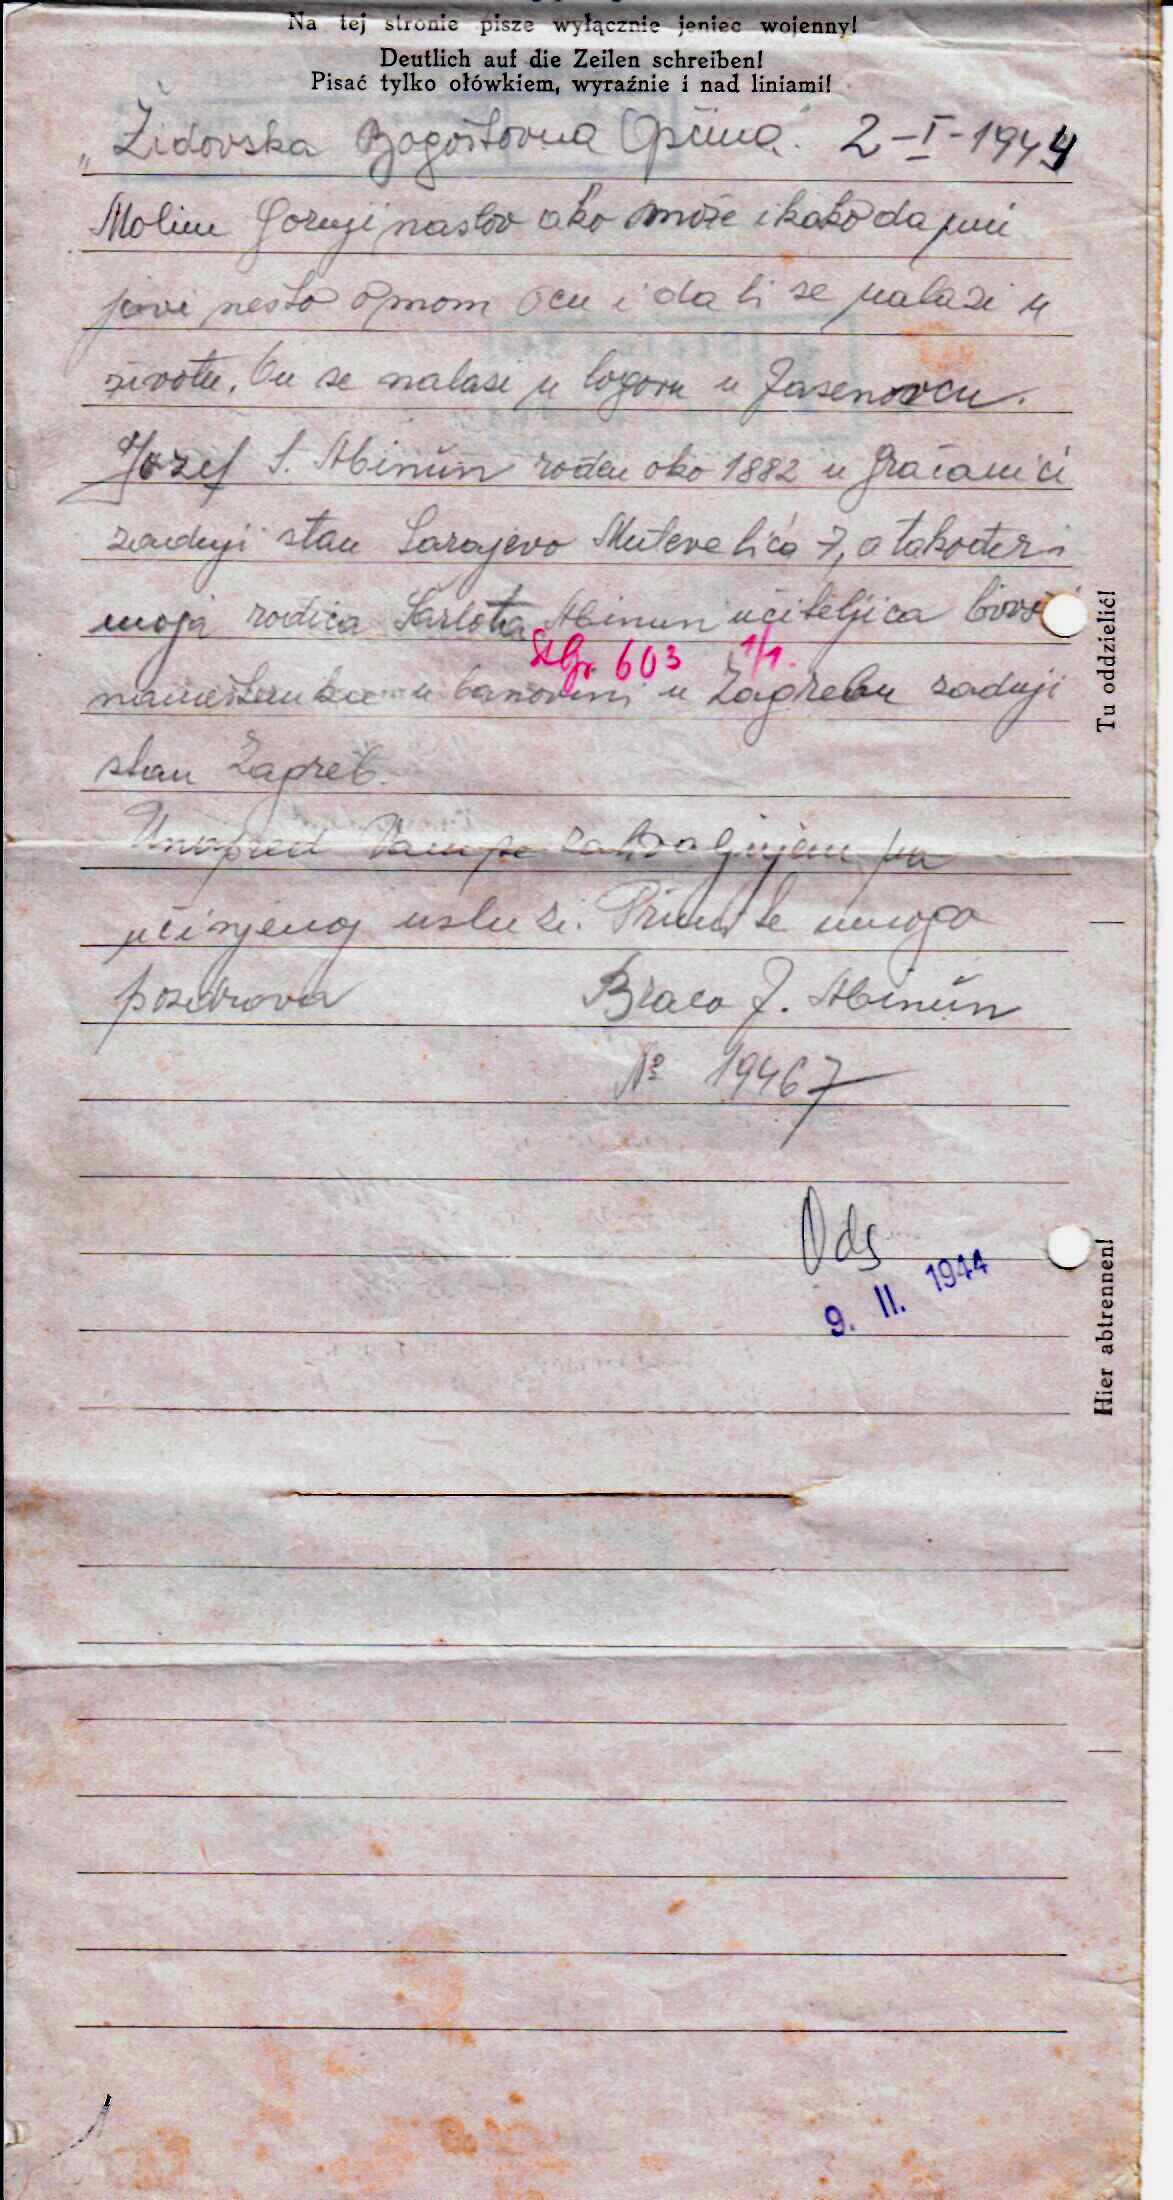 Na tej stronie pisze wyłącznie jeniec wojenny!
Deutlich auf die Zeilen schreiben!
Pisać tylko ołówkiem, wyraźnie i nad liniami!
„Židovska Bogoštovna Općina" 2-I-1944
Molim Gornji naslov ako može ikako da mi
javi nešto o mom Ocu i da li se nalazi u
životu. On se nalazi u logoru u Jasenovcu.
Jozef S. Abinun rođen oko 1882 u Gračanici
zadnji stan Sarajevo Mutevelića 7, a također i
moja rodica Šarlota Abinun učiteljica bivša
StGr 603 1/1.
namještenka u banovini u Zagrebu zadnji
stan Zagreb.
Unapred Vam se zahvaljujem na
učinjenoj usluzi. Primite mnogo
pozdrava Braco J. Abinun
№ 19467
Ods
9. II. 1944
Tu oddzielić!
Hier abtrennen!